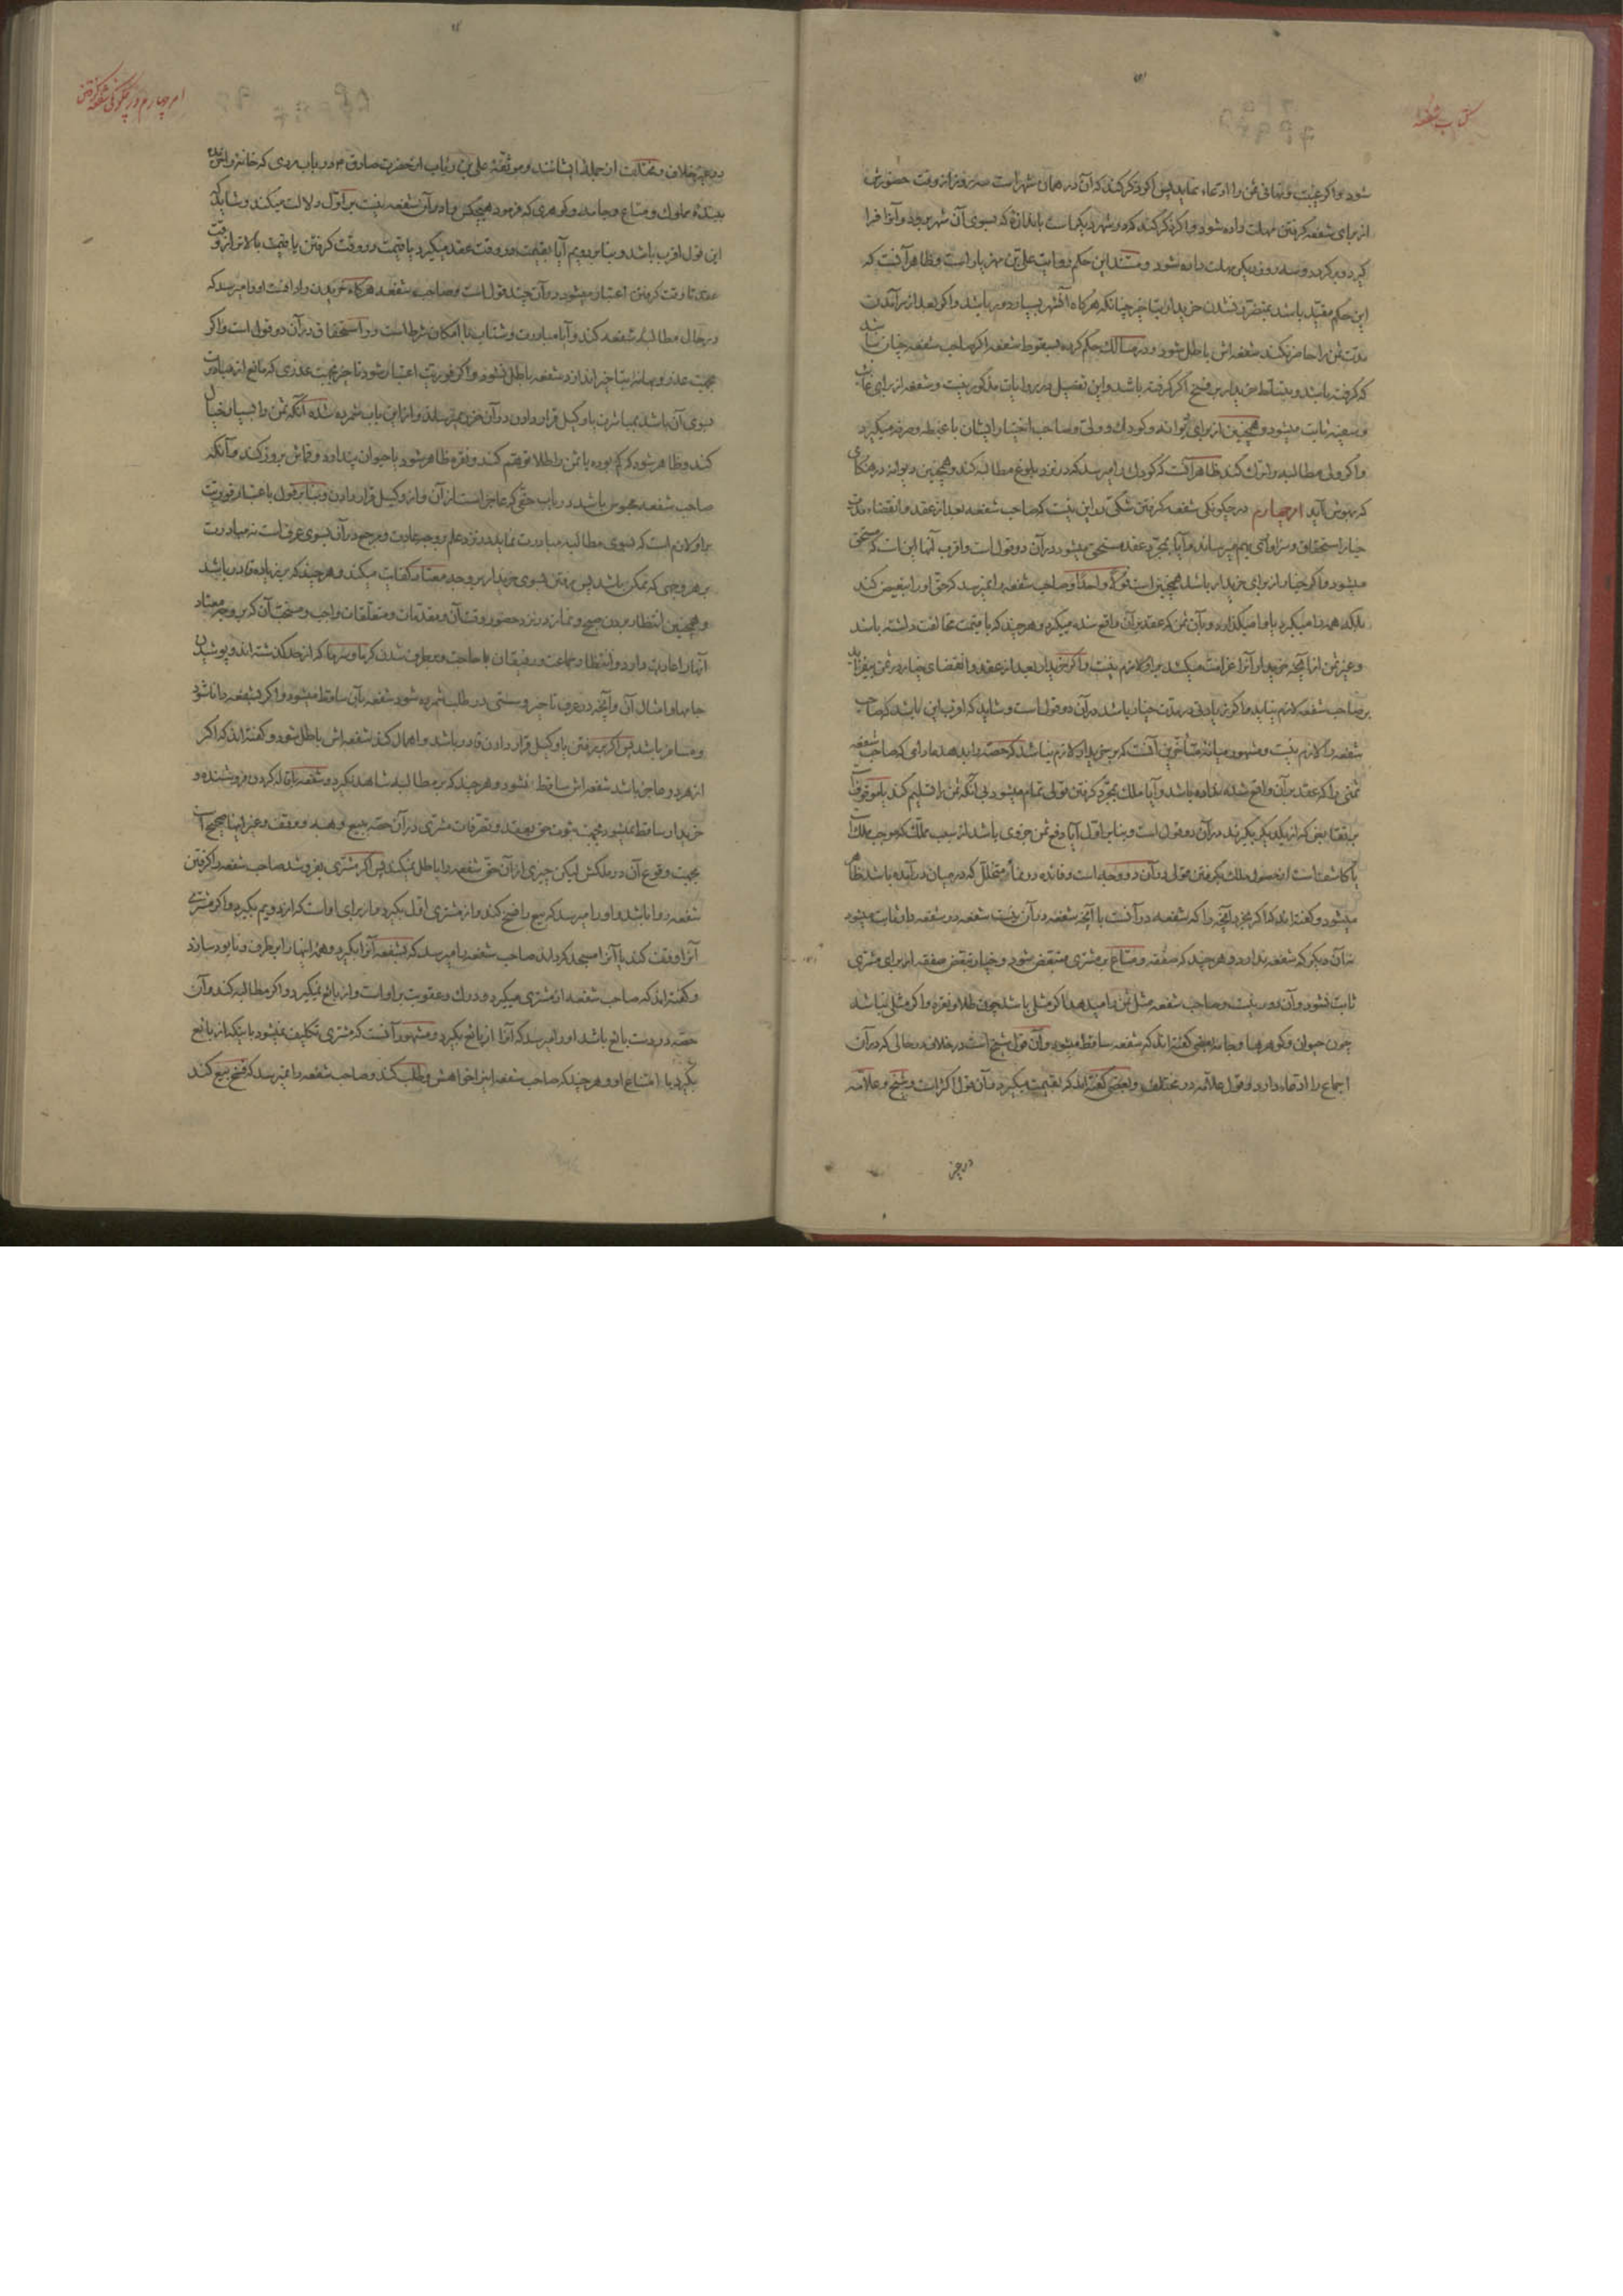 کتاب شفعه
شود و اگر غیبت و تمامی ثمن را ادعاء نماید پس اگر ذکر کند که آن در همان شهر است سه روز از وقت حضورش
از برای شفعه گرفتن مهلت داده شود و اگر ذکر کند که در شهر دیگر است باندازه که بسوی آن شهر برود و آنرا فرا
گیرد و برگردد و سه روز دیگر مهلت داده شود و مستند این حکم روایت علی بن مهزیار است و ظاهر آنست که
این حکم مقید باشد بمتضرر نشدن خریدار بتأخیر چنانکه هرگاه آنشهر بسیار دور باشد و اگر بعد از برآمدن
مدت ثمن را حاضر نکند شفعه‌اش باطل شود و در مسالک حکم کرده بسقوط شفعه اگر صاحب شفعه چنان باشد
که گرفته باشد و بتسلط خریدار بر فسخ اگر گرفته باشد و این تفصیل در روایات مذکور نیست و شفعه از برای غائب
و سفیه ثابت میشود و همچنین از برای دیوانه و کودک و ولی و صاحب اختیار ایشان با غبطه و صرفه میگیرد
و اگر ولی مطالبه را ترک کند ظاهر آنست که کودک را میرسد که در نزد بلوغ مطالبه کند و همچنین دیوانه در هنگامی
که بهوش آید امر چهارم در چگونگی شفعه گرفتن شکی در این نیست که صاحب شفعه بعد از عقد و انقضاء مدت
خیار استحقاق و سزاواری بهم میرساند و آیا بمجرد عقد مستحق میشود در آن دو قولست و اقرب آنها این است که مستحق
میشود و اگر خیار از برای خریدار باشد همچنین است قولا واحدا و صاحب شفعه را نمیرسد که حق او را تبعیض کند
بلکه همه را میگیرد یا وا میگذارد و بآن ثمن که عقد بر آن واقع شده میگیرد و هر چند که با قیمت مخالفت داشته باشد
و غیر ثمن از آنچه خریدار آنرا غرامت میکشد بر او لازم نیست و اگر خریدار بعد از عقد و انقضای خیار در ثمن بیفزاید
بر صاحب شفعه لازم نیاید و اگر زیادتی در مدت خیار باشد در آن دو قول است و شاید که اقرب این باشد که صاحب
شفعه را لازم نیست و مشهور میانه متأخرین آنست که بر خریدار لازم نباشد که حصه را بدهد مادامی که صاحب شفعه
ثمنی را که عقد بر آن واقع شده نداده باشد و آیا ملک بمجرد گرفتن قولی تمام میشود بی آنکه ثمن را تسلیم کند یا موقوفست
بر تقابض که از یکدیگر بگیرند در آن دو قول است و بنابر اول آیا دفع ثمن جزوی باشد از سبب تملک که موجب ملک است
یا کاشف است از حصول ملک بگرفتن قولی در آن دو وجه است و فائده در نماء متخلل که در میان درآمده باشد ظاهر
میشود و گفته‌اند که اگر بخرد آنچه را که شفعه در آنست با آنچه شفعه در آن نیست شفعه در شفعه دار ثابت میشود
نه آن دیگر که شفعه ندارد و هر چند که صفقه و متاع بر مشتری متبعض شود و خیار تبعض صفقه از برای مشتری
ثابت نشود و آن دور نیست و صاحب شفعه مثل ثمن را میدهد اگر مثلی باشد چون طلا و نقره و اگر مثلی نباشد
چون حیوان و گوهرها و جامه بعضی گفته‌اند که شفعه ساقط میشود و آن قول شیخ است در خلاف در حالی که در آن
اجماع را ادعاء دارد و قول علامه در مختلف و بعضی گفته‌اند که بقیمت میگیرد و آن قول اکثر است و شیخ و علامه
در غیر
امر چهارم در چگونگی شفعه گرفتن
در غیر خلاف و مختلف از جمله ایشانند و موثقه علی بن رئاب از حضرت صادق ع در باب مردی که خانه را خریده
ببنده مملوک و متاع و جامه و گوهری که فرمود هیچکس را در آن شفعه نیست بر اول دلالت میکند و شاید که
این قول اقرب باشد و بنابر دویم آیا بقیمت در وقت عقد میگیرد یا قیمت در وقت گرفتن یا قیمت بالاتر از وقت
عقد تا وقت گرفتن اعتبار میشود در آن چند قول است و صاحب شفعه هرگاه خریدن را دانست او را میرسد که
در حال مطالبه شفعه کند و آیا مبادرت و شتاب با امکان شرط است در استحقاق در آن دو قول است و اگر
بجهت عذر و بهانه بتأخیر اندازد شفعه باطل نشود و اگر فوریت اعتبار شود تأخیر بجهت عذری که مانع از مبادرت
بسوی آن باشد بمباشرت یا وکیل قرار دادن در آن ضرر نمیرساند و از این باب شمرده شده آنکه ثمن را بسیار خیال
کند و ظاهر شود که کم بوده یا ثمن را طلا توهم کند و نقره ظاهر شود یا حیوان پندارد و قماش بروز کند و آنکه
صاحب شفعه محبوس باشد در باب حقی که عاجز است از آن و از وکیل قرار دادن و بنابر قول باعتبار فوریت
بر او لازم است که بسوی مطالبه مبادرت نماید در نزد علم بر وجه عادت و مرجع در آن بسوی عرف است نه مبادرت
بر هر وجهی که ممکن باشد پس رفتن بسوی خریدار بر وجه معتاد کفایت میکند و هر چند که بر زیاده قادر باشد
و همچنین انتظار بردن صبح و نماز در نزد حضور وقت آن و مقدمات و متعلقات واجب و مستحب آن که بر وجه معتاد
آنها را عادت دارد و انتظار جماعت و رفیقان با حاجت و برطرف شدن گرما و سرما که از حد گذشته‌اند و پوشیدن
جامها و امثال آن و آنچه در عرف تأخیر و سستی در طلب شمرده شود شفعه بآن ساقط میشود و اگر بشفعه دانا شود
و مسافر باشد پس اگر بر رفتن یا وکیل قرار دادن قادر باشد و اهمال کند شفعه‌اش باطل شود و گفته‌اند که اگر
از هر دو عاجز باشد شفعه‌اش ساقط نشود و هر چند که بر مطالبه شاهد نگیرد و شفعه باقاله کردن فروشنده و
خریدار ساقط نمیشود بجهت ثبوت حق بعقد و تصرفات مشتری در آن حصه ببیع و هبه و وقف و غیر اینها صحیح است
بجهت وقوع آن در ملکش لیکن چیزی از آن حق شفعه را باطل نمیکند پس اگر مشتری بفروشد صاحب شفعه را گرفتن
شفعه روا باشد و او را میرسد که بیع را فسخ کند و از مشتری اول بگیرد و از برای او است که از دویم بگیرد و اگر مشتری
آنرا وقف کند یا آنرا مسجد گرداند صاحب شفعه را میرسد که بشفعه آنرا بگیرد و همه اینها را برطرف و نابود سازد
و گفته‌اند که صاحب شفعه از مشتری میگیرد و درک و عقوبت بر او است و از بائع نمیگیرد و اگر مطالبه کند و آن
حصه در دست بائع باشد او را میرسد که آنرا از بائع بگیرد و مشهور آنست که مشتری تکلیف نمیشود باینکه از بائع
بگیرد با امتناع او و هر چند که صاحب شفعه اینرا خواهش و طلب کند و صاحب شفعه را نمیرسد که فسخ بیع کند